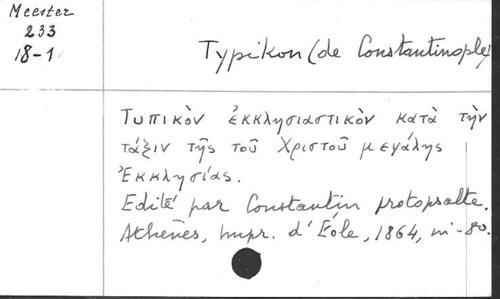 Meester
233
18-1
Typikon (de Constantinople)
Τυπικὸν ἐκκλησιαστικὸν κατὰ τὴν
τάξιν τῆς τοῦ Χριστοῦ μεγάλης
Ἐκκλησίας.
Edité par Constantin protopsalte.
Athènes, Impr. d'Eole, 1864, in-8o.